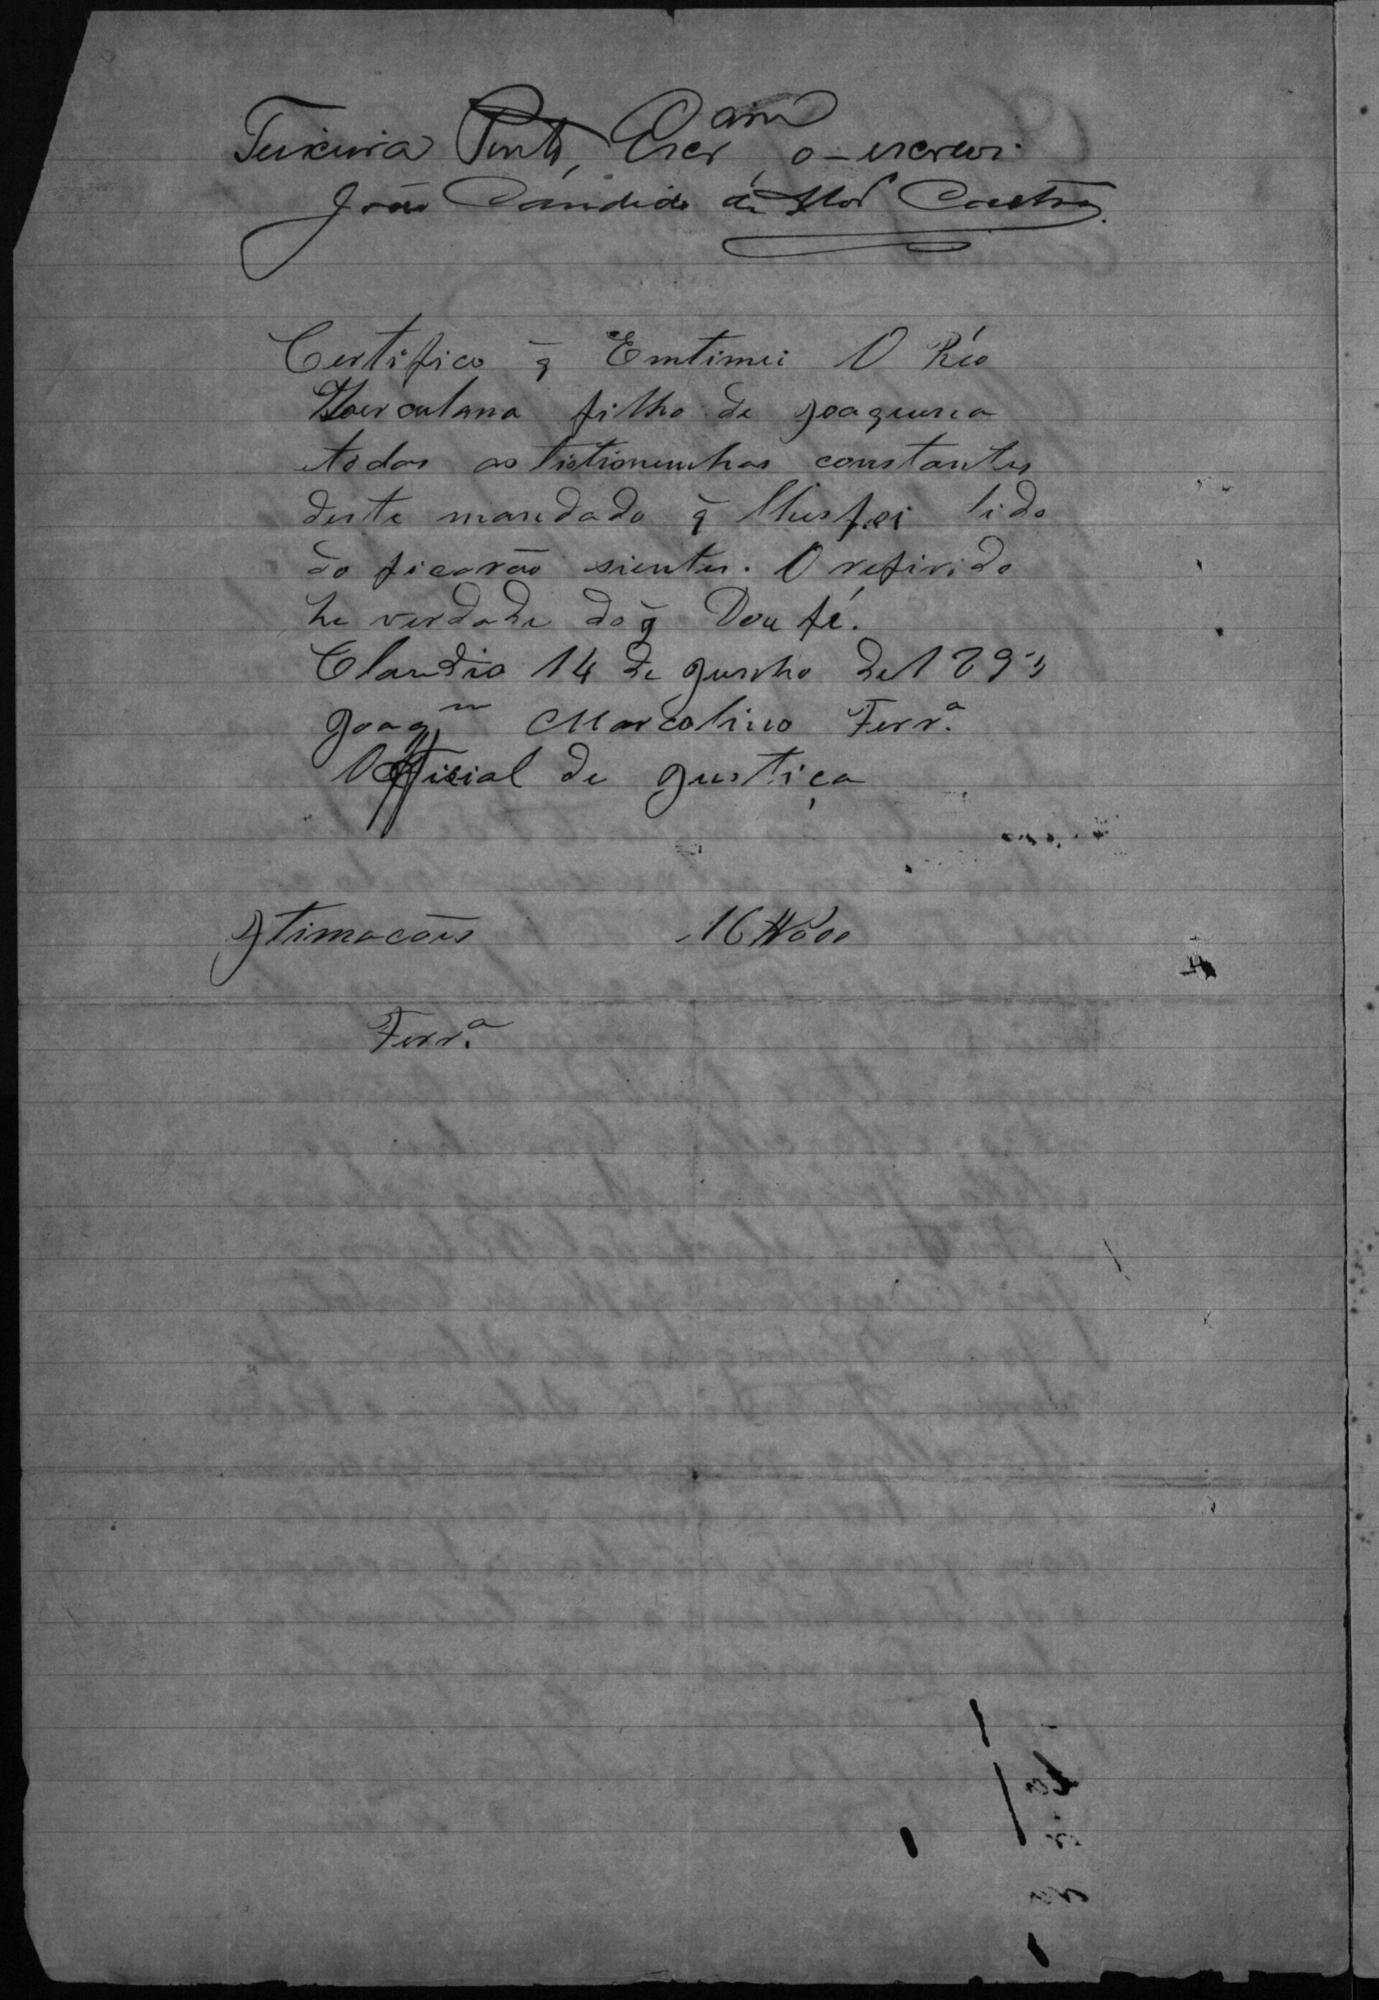 Teixeira Pinto, Escr am o-escrevi.
João Candido de Castro.
Certifico q̃ Emtimei O Réo
Herculano filho de Joaquina
etodas as tistiomunhas constantes
deste mandado q̃ lhes foi lido
do ficarão sientes. O refirido
he verdade do q̃ Dou fé.
Claudio 14 de Junho de 189
Joaqm Marcolino Ferrª.
Official de Justiça
Itimacões 16$000
Ferrª.